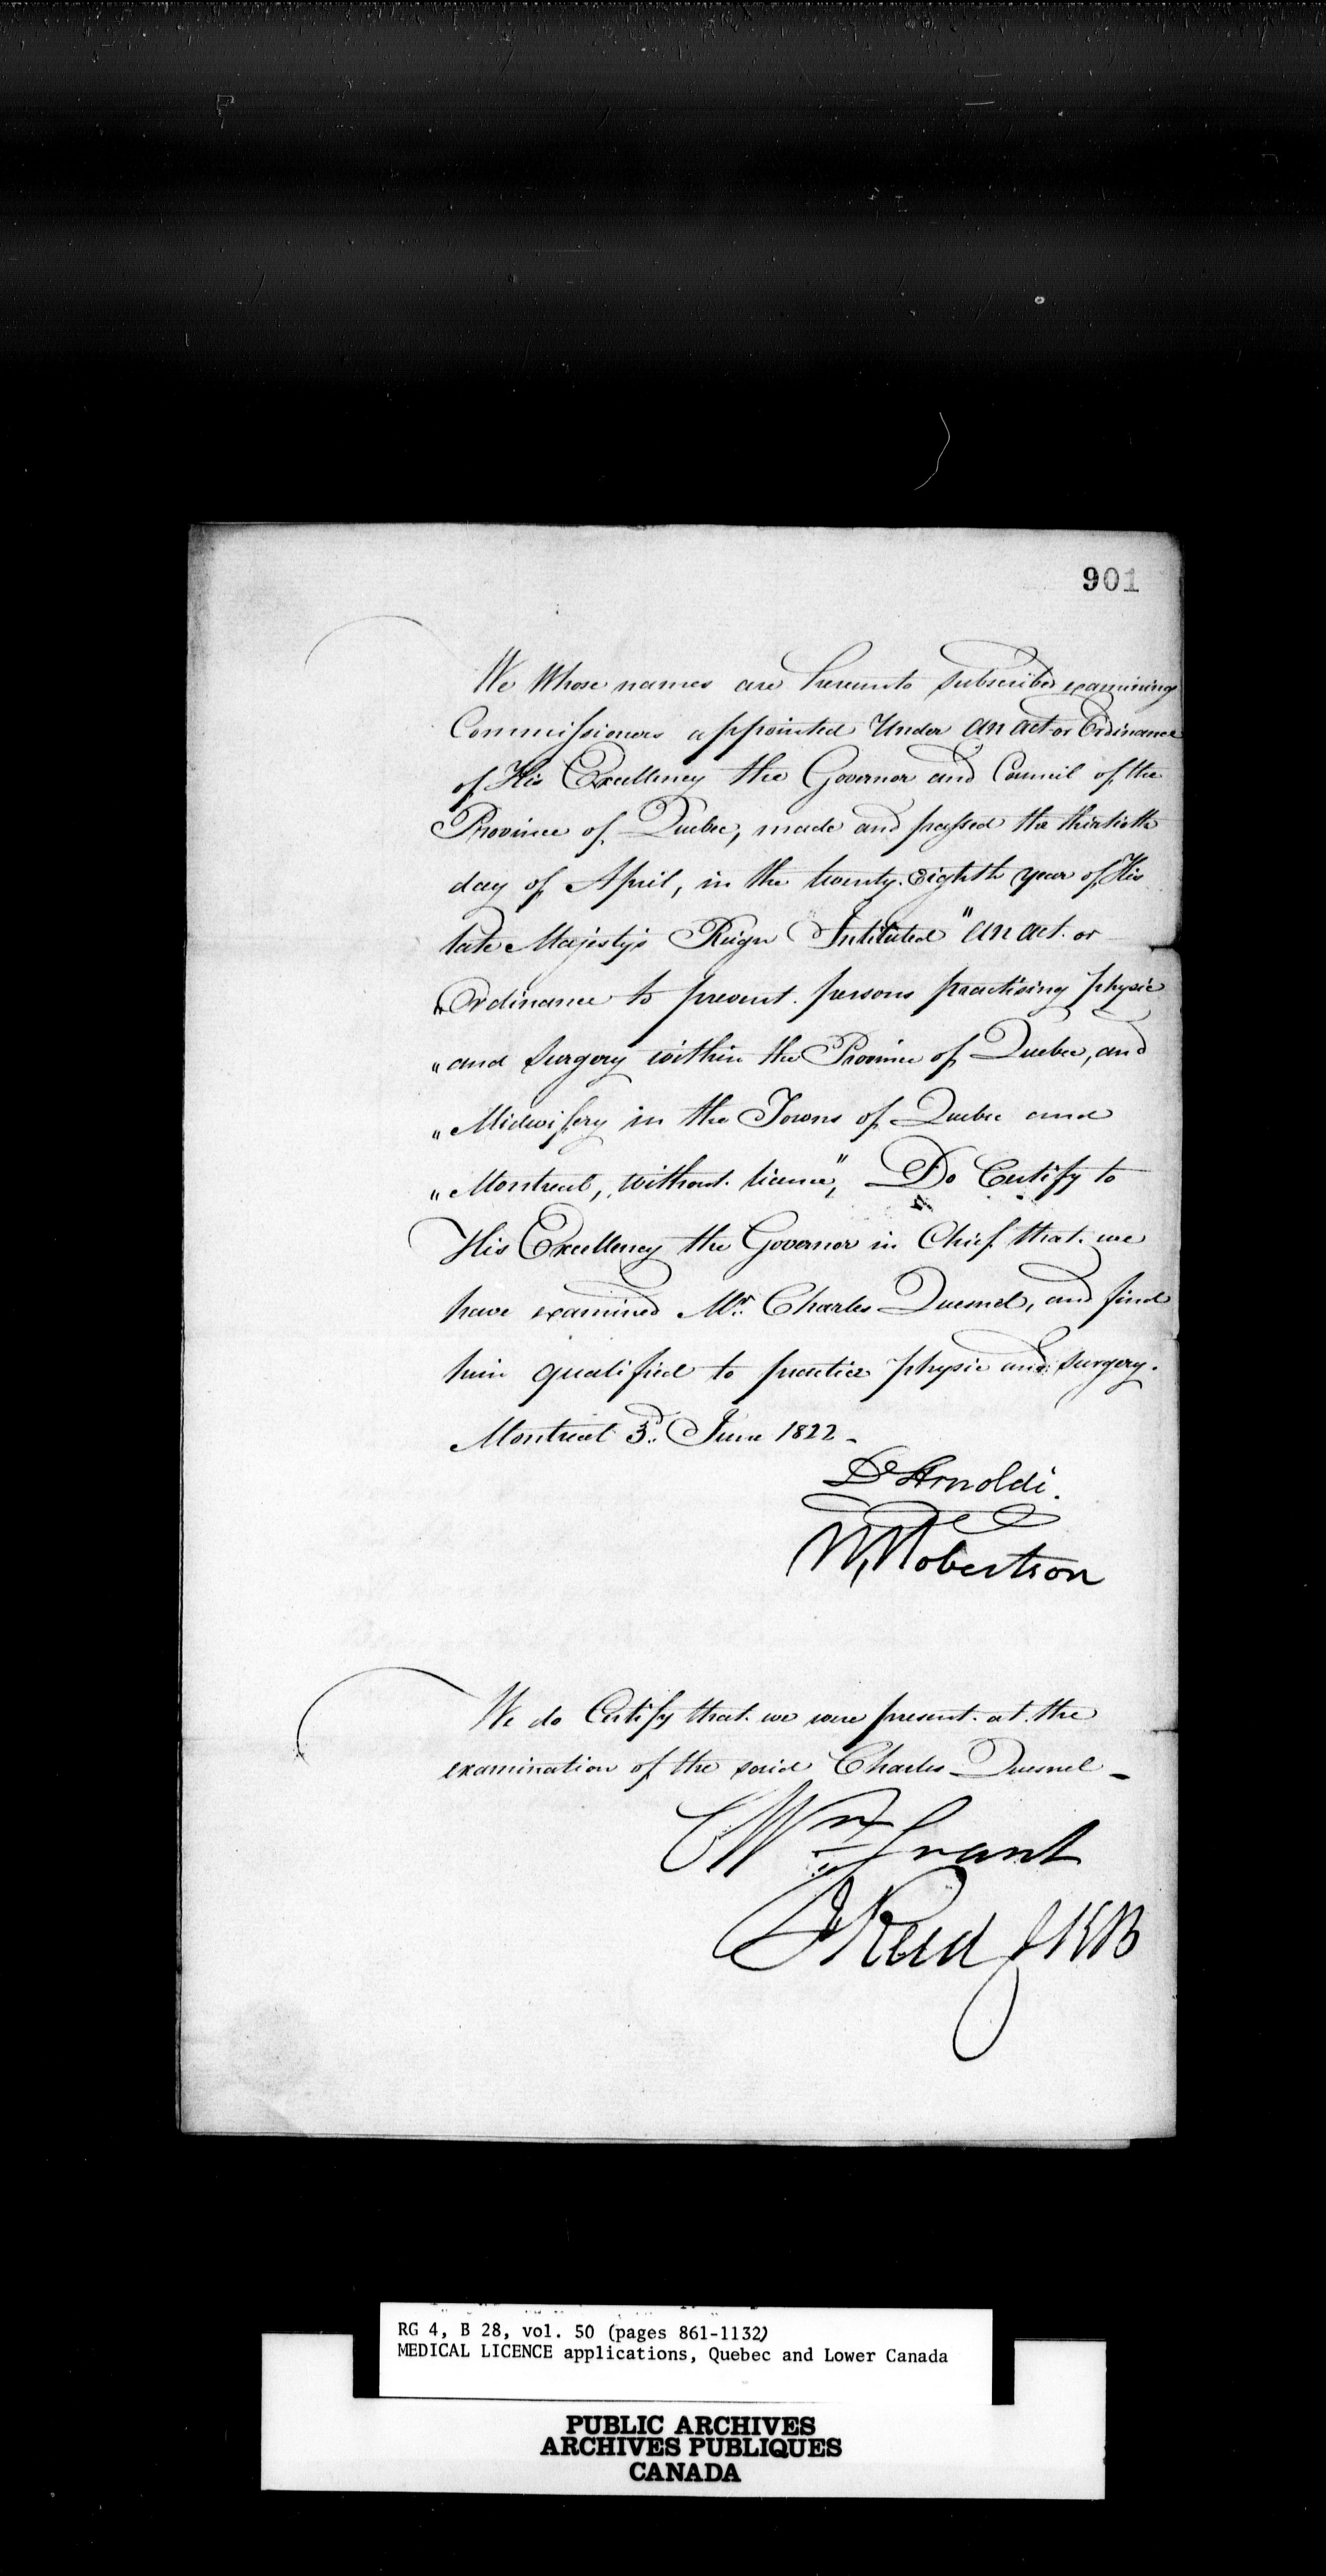 901
We Whose names are hereunto subscribed examining
Commissioners appointed Under an act or Ordinance
of His Excellency the Governor and Council of the
Province of Quebec, made and passed the thirtieth
day of April, in the twenty-eighth year of His
late Majesty's Reign Intituled "an act or
"Ordinance to prevent persons practising physic
"and surgery within the Province of Quebec, and
"Midwifery in the Towns of Quebec and
"Montreal, without licence", Do Certify to
His Excellency the Governor in Chief that we
have examined Mr. Charles Quesnel, and find
him qualified to practice physic and surgery.
Montreal 3d. June 1822 -
Dl Arnoldi.
W, Robertson
We do Certify that we were present at the
examination of the said Charles Quesnel -
C Wm Grant
J Reid J K B
RG 4, B 28, vol. 50 (pages 861-1132)
MEDICAL LICENCE applications, Quebec and Lower Canada
PUBLIC ARCHIVES
ARCHIVES PUBLIQUES
CANADA